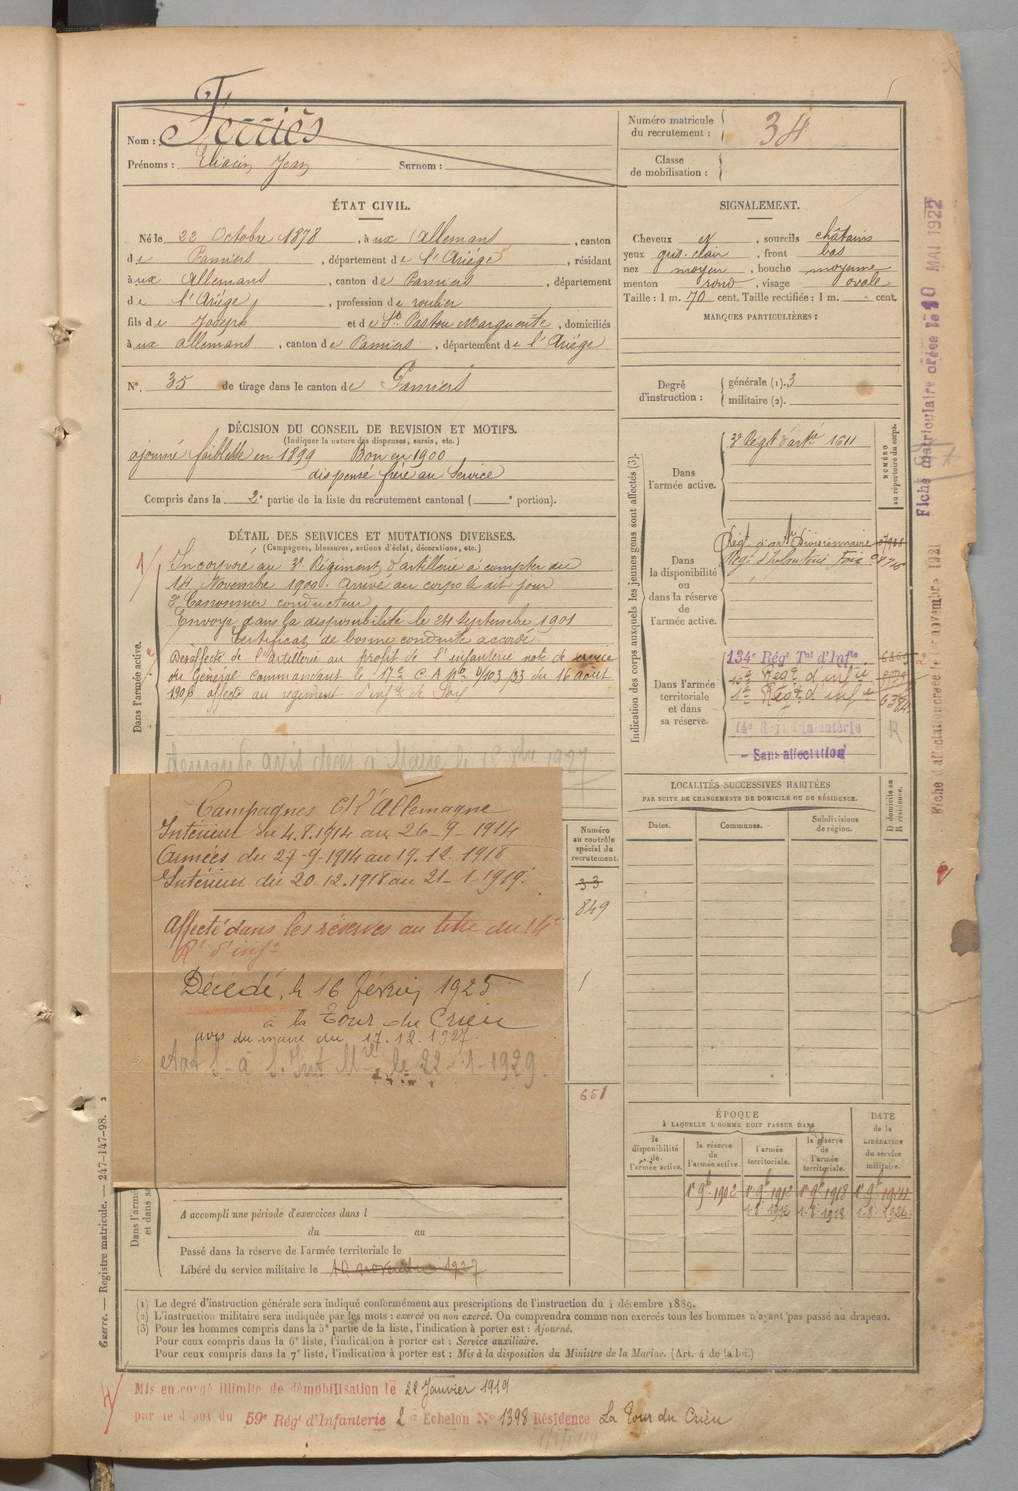 Nom : Ferriès
Prénoms : Eliacin Jean Surnom :
Numéro matricule du recrutement : 34
Classe de mobilisation :
ÉTAT CIVIL.
Né le 22 Octobre 1878, à ux Allemans, canton
de Pamiers, département de l'Ariège, résidant
à ux Allemans, canton de Pamiers, département
de l'Ariège, profession de roulier
fils de Joseph et de Pastou Marguerite, domiciliés
à ux allemans, canton de Pamiers, département de l'Ariège
N° 35 de tirage dans le canton de Pamiers
SIGNALEMENT.
Cheveux et, sourcils châtains
yeux gris-clair, front bas
nez moyen, bouche moyenne
menton rond, visage ovale
Taille : 1 m. 70 cent. Taille rectifiée : 1 m. cent.
MARQUES PARTICULIÈRES :
Degré d'instruction : générale (1). 3
militaire (2).
DÉCISION DU CONSEIL DE REVISION ET MOTIFS.
(Indiquer la nature des dispenses, sursis, etc.)
ajourné faiblesse en 1899 Bon en 1900
dispensé frère au service
Compris dans la 2e partie de la liste du recrutement cantonal ( e portion).
DÉTAIL DES SERVICES ET MUTATIONS DIVERSES.
(Campagnes, blessures, actions d'éclat, décorations, etc.)
Dans l'armée active.
Incorporé au 3e Régiment d'artillerie à compter du
14 Novembre 1900. Arrivé au corps le dit jour
2e Canonnier conducteur
Envoyé dans la disponibilité le 24 septembre 1901
Certificat de bonne conduite accordé
Désaffecté de l'artillerie au profit de l'infanterie note de service
du Général commandant le 17e C.A. No 4/103/33 du 16 août
1906 affecté au régiment d'infie de Foix
Campagnes Ct l'Allemagne
Intérieur du 4.8.1914 au 26-9-1914
Armées du 27-9-1914 au 19.12.1918
Intérieur du 20-12.1918 au 21-1-1919.
Affecté dans les réserves au titre du 14e
Rt d'infie
Décédé, le 16 février 1925
à la Tour du Crieu
avis du maire du 17.12.1927
le 22-1-1929.
Numéro au contrôle spécial du recrutement.
33
849
1
651
A accompli une période d'exercices dans l
du au
Passé dans la réserve de l'armée territoriale le
Libéré du service militaire le 10 novembre 1927
Indication des corps auxquels les jeunes gens sont affectés (3).
NUMÉRO au répertoire du corps.
Dans l'armée active.
3e Régt d'artie 1611
Dans la disponibilité ou dans la réserve de l'armée active.
Régt d'artie Divisionnaire
Régt d'Infanterie Foix
Dans l'armée territoriale et dans sa réserve.
134e Régt Tal d'Infie
Régt d'infie
1er Régt d'infie 6384
14e Régt d'Infanterie R
- Sans affectation
LOCALITÉS SUCCESSIVES HABITÉES
PAR SUITE DE CHANGEMENTS DE DOMICILE OU DE RÉSIDENCE.
D domicile ou R résidence.
Dates. Communes. Subdivisions de région.
ÉPOQUE
À LAQUELLE L'HOMME DOIT PASSER DANS
DATE de la LIBÉRATION du service militaire.
la disponibilité de l'armée active. la réserve de l'armée active. l'armée territoriale. la réserve de l'armée territoriale.
1er 9b 1902 1er 9b 1912 1er 9b 1918
Fiche matriculaire créée le 10 MAI 1922
(1) Le degré d'instruction générale sera indiqué conformément aux prescriptions de l'instruction du 4 décembre 1889.
(2) L'instruction militaire sera indiquée par les mots : exercé ou non exercé. On comprendra comme non exercés tous les hommes n'ayant pas passé au drapeau.
(3) Pour les hommes compris dans la 5e partie de la liste, l'indication à porter est : Ajourné.
Pour ceux compris dans la 6e liste, l'indication à porter est : Service auxiliaire.
Pour ceux compris dans la 7e liste, l'indication à porter est : Mis à la disposition du Ministre de la Marine. (Art. 4 de la loi.)
Guerre. — Registre matricule. — 247-147-98.
Mis en congé illimité de démobilisation le 21 Janvier 1919
par le dépôt du 59e Régt d'Infanterie 2e Echelon No 1398 Résidence La Tour du Crieu